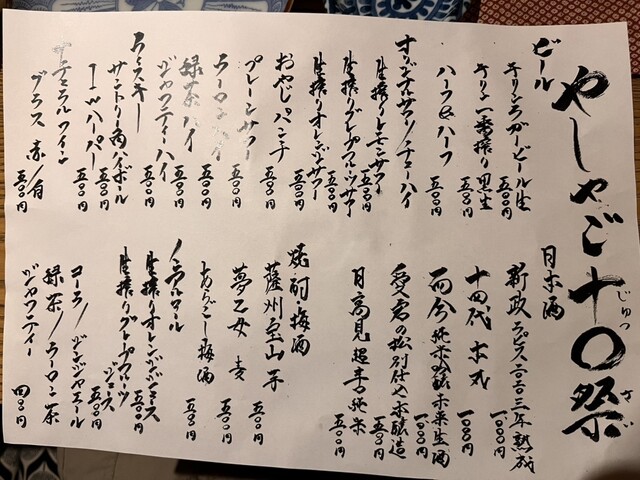 やしゃご十〇祭
じゅっ さ
ビール
キリンラガービール生 五〇〇円
キリン一番搾り黒生 五〇〇円
ハーフ&ハーフ 五〇〇円
オリジナルサワー/チューハイ
生搾りレモンサワー 五〇〇円
生搾りグレープフルーツサワー 五〇〇円
生搾りオレンジサワー 五〇〇円
おやじパンチ 五〇〇円
プレーンサワー 五〇〇円
ウーロンハイ 五〇〇円
緑茶ハイ 五〇〇円
ジャスミンティーハイ 五〇〇円
ウイスキー
サントリー角ハイボール 五〇〇円
I・Wハーパー 五〇〇円
ナチュラルワイン
グラス 赤/白 五〇〇円
日本酒
新政 二〇二三年熟成 一〇〇〇円
十四代 本丸 一〇〇〇円
而今 純米吟醸 生酒 一〇〇〇円
愛君の特別仕込本醸造 五〇〇円
日高見 超辛口純米 五〇〇円
焼酎 梅酒
薩州宝山 芋 五〇〇円
夢乙女 麦 五〇〇円
あらごし梅酒 五〇〇円
ノンアルコール
生搾りオレンジジュース 五〇〇円
生搾りグレープフルーツジュース 五〇〇円
コーラ/ジンジャエール
緑茶/ウーロン茶
ジャスミンティー 四〇〇円